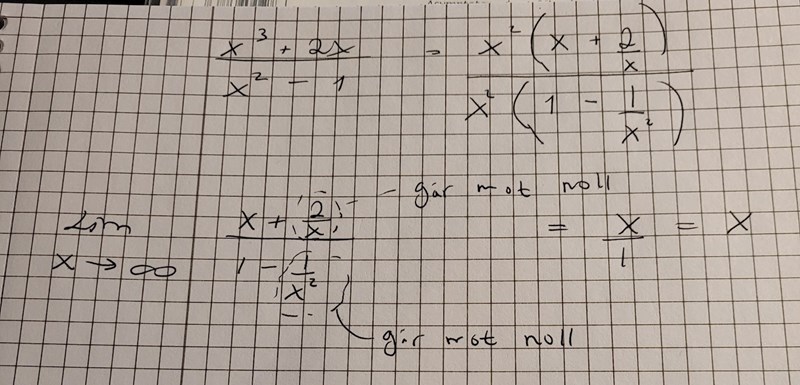 x³ + 2x / x² - 1 = x² (x + 2/x) / x² (1 - 1/x²)
lim x → ∞ x + 2/x / 1 - 1/x² = x/1 = x
går mot noll
går mot noll